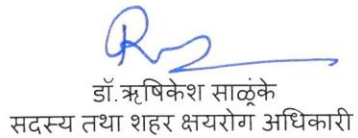 डॉ.ऋषिकेश साळुंके
सदस्य तथा शहर क्षयरोग अधिकारी